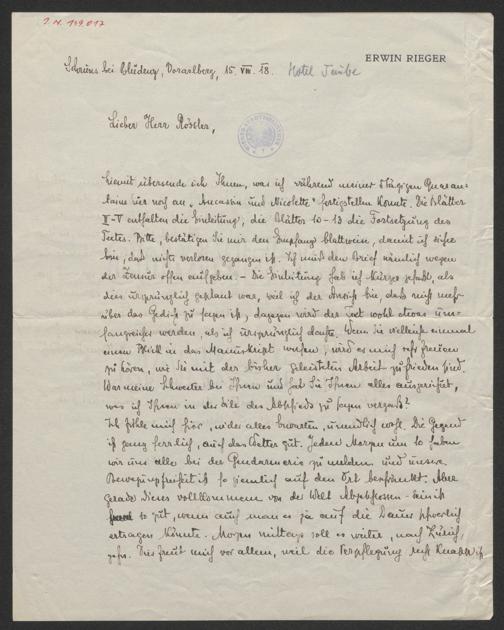 J. N. 149.017
ERWIN RIEGER
Schruns bei Bludenz, Vorarlberg, 15. VIII. 18. Hotel Taube
Lieber Herr Rössler,
hiemit übersende ich Ihnen, was ich während meiner 8tägigen Quaran-
taine hier noch an „Aucassin und Nicolette" fertigstellen konnte. Die Blätter
II-V enthalten die Einleitung, die Blätter 10-13 die Fortsetzung des
Textes. Bitte, bestätigen Sie mir den Empfang blattweise, damit ich sicher
bin, daß nichts verloren gegangen ist. Ich muß den Brief nämlich wegen
der Zensur offen aufgeben. – Die Einleitung hab ich kürzer gefaßt, als
dies ursprünglich geplant war, weil ich der Ansicht bin, daß nicht mehr
über das Gedicht zu sagen ist, dagegen wird der Text wohl etwas um-
fangreicher werden, als ich ursprünglich dachte. Wenn Sie vielleicht einmal
einen Blick in das Manuskript werfen, wird es mich sehr freuen
zu hören, wie Sie mit der bisher geleisteten Arbeit zufrieden sind.
War meine Schwester bei Ihnen und hat Sie Ihnen alles ausgerichtet,
was ich Ihnen in der Eile des Abschieds zu sagen vergaß?
Ich fühle mich hier, wider alles Erwarten, unendlich wohl. Die Gegend
ist ganz herrlich, auch das Wetter gut. Jeden Morgen um 10 haben
wir uns alle bei der Gendarmerie zu melden und unsere
Bewegungsfreiheit ist so ziemlich auf den Ort beschränkt. Aber
gerade dieses vollkommen von der Welt Abgeschlossen-sein ist
so gut, wenn auch man es ja auf die Dauer schwerlich
ertragen könnte. Morgen mittags soll es weiter, nach Zürich,
gehn. Dies freut mich vor allem, weil die Verpflegung recht knapp ist